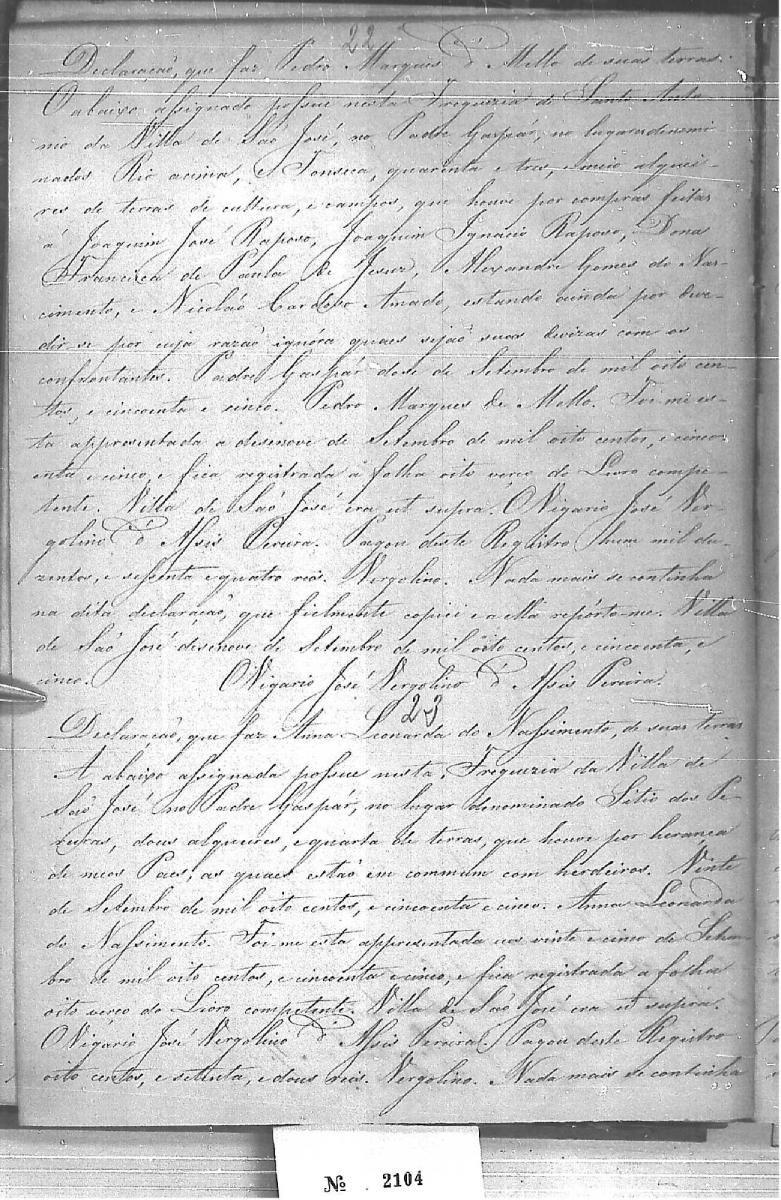 22
Declaração, que faz Pedro Marques d'Mello de suas terras.
O abaixo assignado possue nesta Freguezia de Santo Anto
nio da Villa de São José, no Padre Gaspár, no lugar denomi
nados Rio acima, e Fonseca, quarenta e tres, e meio alquei-
res de terras de cultura, e campos, que houve por compras feitas
á Joaquim José Raposo, Joaquim Ignacio Raposo, Dona
Francisca de Paula de Jesus, Alexandre Gomes do Nas-
cimento, e Nicoláo Cardoso Amado, estando ainda por deve-
dir-se por cuja razaõ ignóra quaes sejaõ suas devizas com os
confrontantes. Padre Gaspár dose de Setembro de mil oito cen-
tos, e cincoenta e cinco. Pedro Marques de Mello. Foi-me es-
ta appresentada a desenove de Setembro de mil oito centos, e cinco-
enta e cinco, e fica registrada á folha oito verso do Livro compe-
tente. Villa de Saõ José era ut supra. O Vigario José Ver-
golino d'Assis Pereira. Pagou deste Registro hum mil du-
zentos, e sessenta e quatro reis. Vergolino. Nada mais se continha
na dita declaracaõ, que fielmente copiei e a ella repórto-me. Villa
de Saõ José desenove de Setembro de mil oito centos, e cincoenta, e
cinco. O Vigario José Vergolino d'Assis Pereira.
23
Declaracaõ, que faz Anna Leonarda do Nassimento, de suas terras
A abaixo assignada possue nesta Freguezia da Villa de
Saõ José no Padre Gaspár, no lugar denominado Sitio dos Pe-
reiras, dous alqueires, e quarta de terras, que houve por herança
de meos Paes, as quaes estaõ em commum com herdeiros. Vinte
de Setembro de mil oito centos, e cincoenta e cinco. Anna Leonarda
do Nassimento. Foi-me esta appresentada aos vinte e cinco de Setem-
bro de mil oito centos, e cincoenta e cinco, e fica registrada a folha
oito verso do Livro competente. Villa de Saõ José era ut supra.
O Vigário José Vergolino d'Assis Pereira. Pagou deste Registro
oito centos, e setenta, e dous reis. Vergolino. Nada mais se continha
Nº 2104